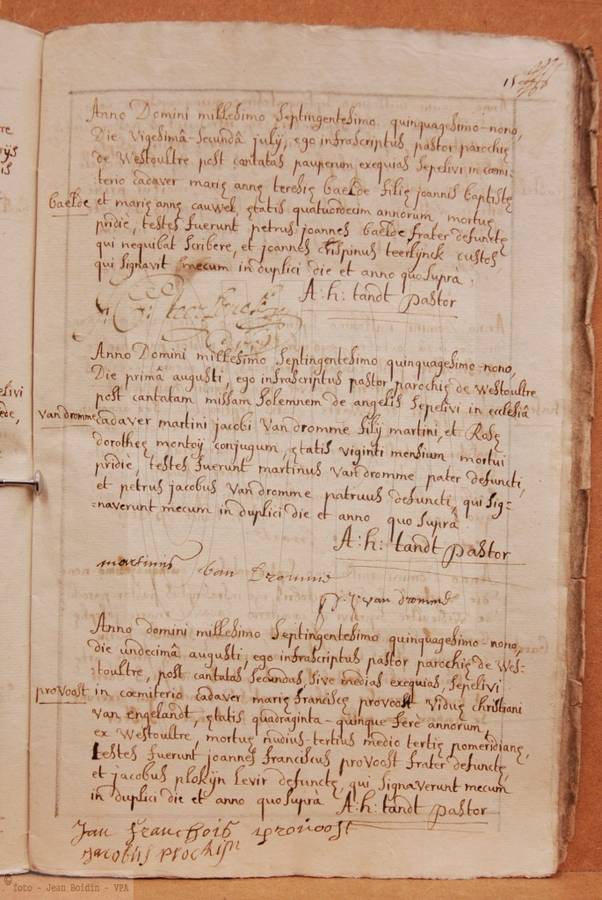 Anno Domini millesimo septingentesimo quinquagesimo-nono,
Die vigesimâ-secundâ julij, ego infrascriptus pastor parochię
de Westoultre post cantatas pauperum exequias sepelivi in cœmi-
terio cadaver marię annę teresię baelde filię joannis baptistę
baelde
et marię annę cauwel, ętatis quatuordecim annorum, mortuę
pridiè, testes fuerunt petrus joannes baelde frater defunctę
qui nequibat scribere, et joannes Chrispinus teerlynck custos
qui signavit mecum in duplici die et anno quo suprà.
A: h: tandt pastor
Anno Domini millesimo septingentesimo quinquagesimo-nono,
Die primâ augusti, ego infrascriptus pastor parochię de Westoultre
post cantatam missam solemnem de angelis sepelivi in ecclesiâ
van dromme
cadaver martini jacobi van dromme filij martini, et Rosę
dorotheę montoÿ conjugum, ętatis viginti mensium mortui
pridiè, testes fuerunt martinus van dromme pater defuncti,
et petrus jacobus van dromme patruus defuncti, qui sig=
=naverunt mecum in duplici die et anno quo suprà
A: h: tandt pastor
martinus van Dromme
p: j: van dromme
Anno domini millesimo septingentesimo quinquagesimo-nono,
die undecimâ augusti, ego infrascriptus pastor parochię de Wes-
toultre, post cantatas secundas, sive medias exequias, sepelivi
provoost
in cœmiterio cadaver marię franciscę provoost viduę christiani
van engelandt, ętatis quadraginta-quinque ferè annorum,
ex Westoultre, mortuę nudius-tertius medio tertię pomeridianę,
testes fuerunt joannes franciscus provoost frater defunctę,
et jacobus plokijn levir defunctę, qui signaverunt mecum
in duplici die et anno quo suprà A: h: tandt pastor
Jan franchois provoost
jacobus
© foto - Jean Boidin - VPA